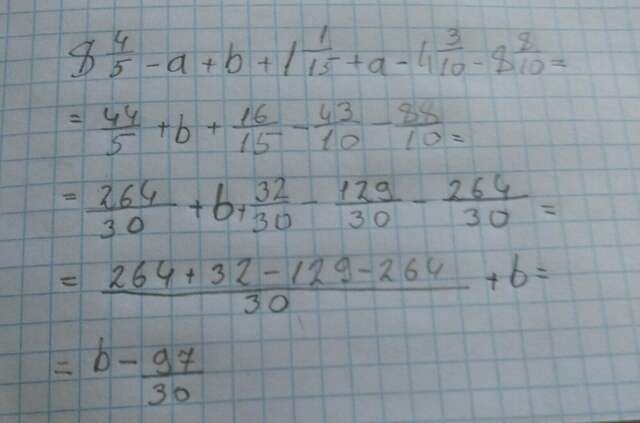 8 4/5 - a + b + 1 1/15 + a - 4 3/10 - 8 8/10 =
= 44/5 + b + 16/15 - 43/10 - 88/10 =
= 264/30 + b + 32/30 - 129/30 - 264/30 =
= (264 + 32 - 129 - 264)/30 + b =
= b - 97/30